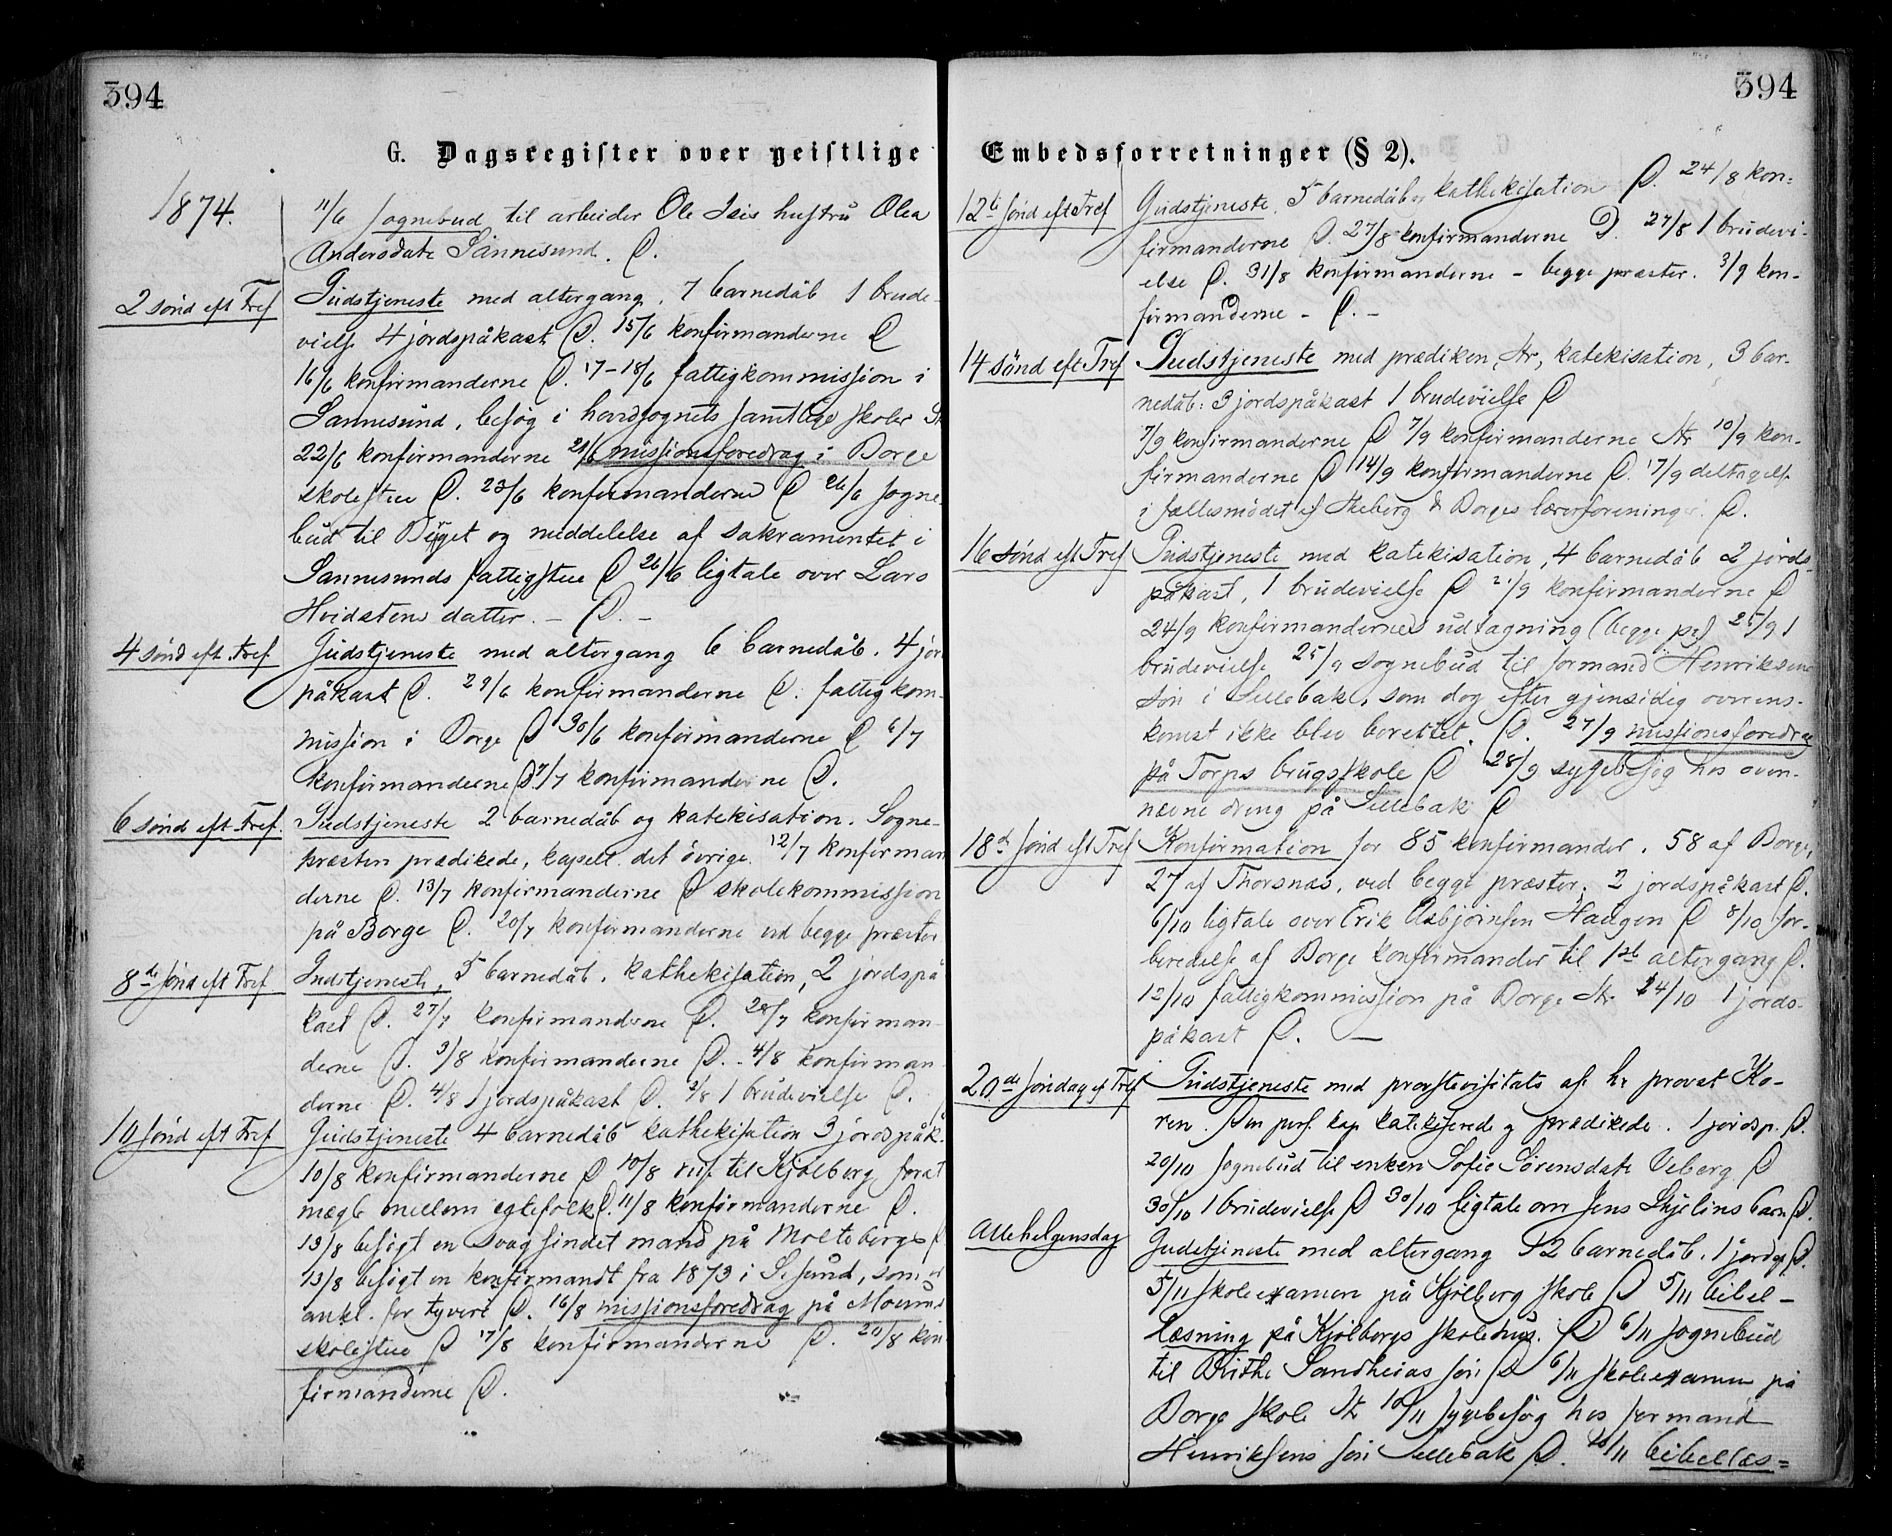 394
G. Dagsregister over geistlige
1874.
11/6 sognebud til arbeider Ole Isis hustrü Olea
Andersdatr Sannesund. P.
2 sønd eft Tref
Gudstjeneste med altergang. 7 barnedåb 1 brude-
vielse 4 jordspåkast P. 15/6 konfirmanderne P
16/6 konfirmanderne P. 17-18/6 fattigkommission i
Sannesund, besøg i hovedsognets samtlige skoler
22/6 konfirmanderne 21/6 missionsforedrag i Borge
skolestue P. 23/6 konfirmanderne P 26/6 sogne
bud til og meddelelse af sakramentet i
Sannesunds fattigstue P 26/6 ligtale over Lars
Hvidstens datter. - P. -
4 sønd eft. Tref.
Gudstjeneste med altergang 6 barnedåb. 4 jor
påkast P. 29/6 konfirmanderne P. fattigkom-
mission i Borge P 30/6 konfirmanderne P 6/7
konfirmanderne P 7/7 konfirmanderne P.
6 sønd eft Tref.
Gudstjeneste 2 barnedåb og katekisation. Sogne-
præsten prædikede, kapell. det øvrige. 12/7 konfirman
derne P. 13/7 konfirmanderne P skolekommission
på Borge P. 20/7 konfirmanderne ved begge præster
8de sønd eft Tref
Gudstjeneste, 5 barnedåb. kathekisation, 2 jordspå
kast P. 27/7 konfirmanderne P. 28/7 konfirman-
derne P. 3/8 konfirmanderne P. - 4/8 konfirman
derne P. 4/8 1 jordspåkast P. 2/8 1 brudevielse P.
10 sønd eft Tref
Gudstjeneste 4 barnedåb kathekisation 3 jordspåk.
10/8 konfirmanderne P 10/8 til Kjølberg for at
mægle mellem egtefolk P. 11/8 konfirmanderne P.
13/8 besøgt en svagsindet mand på Molteberg P
13/8 besøgt en konfirmandt fra 1873 i som er
ankl. for tyveri P. 16/8 missionsforedrag på Moums
skolestue P 17/8 konfirmanderne P. 20/8 kon
firmanderne P.
394
Embedsforretninger (§ 2).
12te sønd eft Tref
Gudstjeneste. 5 barnedåb, kathekisation P. 24/8 kon-
firmanderne P. 27/8 konfirmanderne P. 27/8 1 brudevi-
else P. 31/8 konfirmanderne - begge præster. 3/9 kon-
firmanderne - P. -
14 sønd eft Tref
Gudstjeneste med prædiken, katekisation, 3 bar-
nedåb: 3 jordspåkast 1 brudevielse P
7/9 konfirmanderne P 7/9 konfirmanderne 10/9 kon-
firmanderne P 14/9 konfirmanderne P. 17/9 deltagelse
i fællesmødet af Skeberg & Borges lærerforeninger P.
16 sønd eft Tref
Gudstjeneste med katekisation, 4 barnedåb 2 jords-
påkast, 1 brudevielse P 21/9 konfirmanderne P
24/9 konfirmandernes udtagning (begge pr.) 25/9 1
brudevielse 25/9 sognebud til formand Henriksens
søn i Sellebak, som dog efter gjensidig overens-
komst ikke blev berettet. P. 27/9 missionsforedrag
på Torps brugsskole P 28/9 sygebesøg hos oven-
nævne dreng på Sellebak P
18de sønd eft Tref
Konfirmation for 85 konfirmander. 58 af Borge,
27 af Thorsnæs, ved begge præster. 2 jordspåkast P.
6/10 ligtale over Erik Asbjørnsen Haugen P 8/10 for-
beredelse af Borge konfirmander til 1ste altergang P.
12/10 fattigkommission på Borge 24/10 1 jords-
påkast P. -
20de søndag ef Tref
Gudstjeneste med provstevisitats af hr provst Ko-
ren. Den pers. kap katekiserede og prædikede. 1 jordsp. P.
29/10 sognebud til enken Sofie Sørensdatr Veberg P
30/10 1 brudevielse P 30/10 ligtale over Jens Skjelins barn P.
Allehelgensdag
Gudstjeneste med altergang 2 barnedåb. 1 jordsp P.
5/11 skoleexamen på Kjølberg skole P 5/11 bibel-
læsning på Kjølbergs skolehus. P 6/11 sognebud
til Birthe Sandheias søn P 6/11 skoleexamen på
Borge skole 10/11 sygebesøg hos formand
Henriksens søn Sellebak P. 10/11 bibellæs-